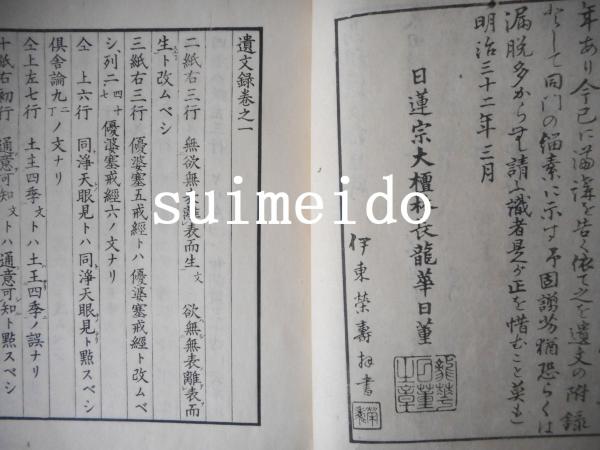 年あり今已に
を告く依て之を遺文の附錄
として同門の緇素に示す
漏脱多からむ請ふ識者是か正を惜むこと莫れ
明治三十二年三月
日蓮宗大檀林長龍華日董
伊東榮壽拝書
遺文録巻之一
二紙右三行 無欲無表離表而生文 欲無無表離表而
生ト改ムベシ
三紙右三行 優婆塞五戒經トハ優婆塞戒經ト改ムベ
シ、列二四十七優婆塞戒經六ノ文ナリ
仝 上六行 同淨天眼見トハ同淨天眼見ト點スベシ
倶舍論九二丁ノ文ナリ
仝上左七行 土主四季文トハ土王四季ノ誤ナリ
十紙右初行 通意可知文トハ通意可知ト點スベシ
suimeido